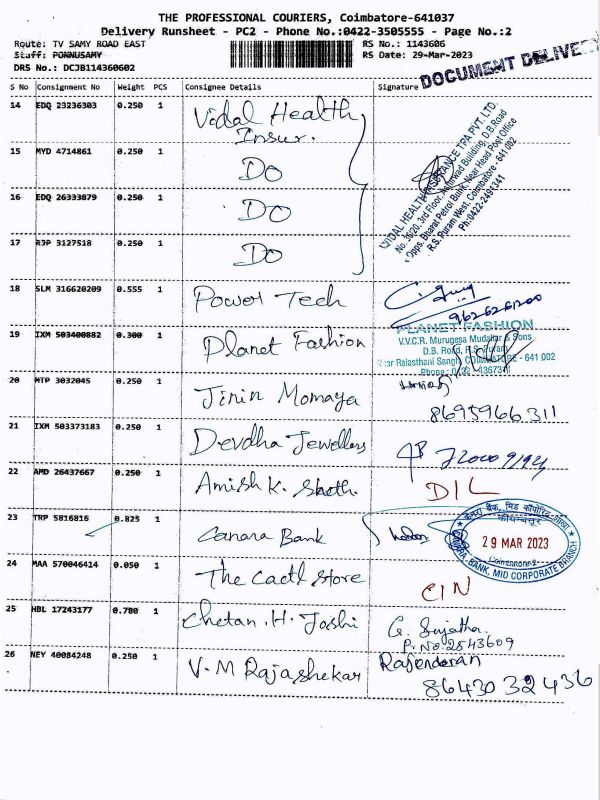 THE PROFESSIONAL COURIERS, Coimbatore-641037
Delivery Runsheet - PC2 - Phone No.:0422-3505555 - Page No.:2
Route: TV SAMY ROAD EAST RS No.: 1143606
Staff: PONNUSAMY RS Date: 29-Mar-2023
DRS No.: DCJB114360602
DOCUMENT DELIVE
S No Consignment No Weight PCS Consignee Details Signature
14 EDQ 23236303 0.250 1 Vidal Health
Insur.
15 MYD 4714861 0.250 1 DO
16 EDQ 26333879 0.250 1 DO
17 RJP 3127518 0.250 1 DO
VIDAL HEALTH INSURANCE TPA PVT. LTD.
R.S. Puram West, Coimbatore - 641 002
Ph:0422-2491341
18 SLM 316620209 0.555 1 Power Tech
19 IXM 503400882 0.300 1 Planet Fashion
PLANET FASHION
V.V.C.R. Murugesa Mudaliar & Sons
D.B. Road, R.S. Puram
Rajasthani Sangh, COIMBATORE - 641 002
20 MTP 3032045 0.250 1 Jinin Momaya 8695966311
21 IXM 503373183 0.250 1 Devdha Jewellers
22 AMD 26437667 0.250 1 Amish K. Sheth. DIL
23 TRP 5816816 0.825 1 Canara Bank
29 MAR 2023
Coimbatore-2
BANK, MID CORPORATE BRANCH
24 MAA 570046414 0.050 1 The Cactl Store CIN
25 HBL 17243177 0.780 1 Chetan.H.Joshi G. Sujatha.
P.No.2543609
26 NEY 40084248 0.250 1 V.M Rajashekar Rajendaran
8643032436